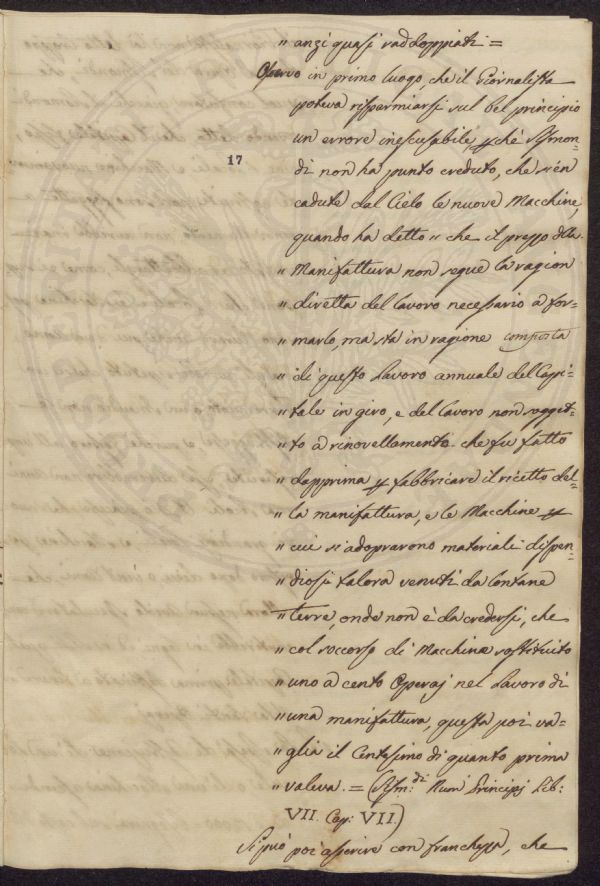 " anzi quasi raddoppiati =
Osservo in primo luogo, che il Giornalista
poteva risparmiarsi sul bel principio
un errore inescusabile, pchè Sismon=
17
di non ha punto creduto, che sien
cadute dal Cielo le nuove Macchine,
quando ha detto " che il prezzo della
" Manifattura non segue la ragion
" diretta del lavoro necessario a for=
" marlo, ma sta in ragione composta
" di questo Lavoro annuale del Capi=
" tale in giro, e del lavoro non sogget=
" to a rinovellamento che fu fatto
" dapprima p fabbricare il ricetto del=
" la manifattura, e le Macchine p
" cui si adoprarono materiali dispen=
" diosi talora venuti da lontane
" terre, onde non è da credersi, che
" col soccorso di Macchine sostituito
" uno a cento Operaj nel Lavoro di
" una manifattura, questa poi va=
" glia il Centesimo di quanto prima
" valeva. = (Sism:di Nuovi Principj Lib:
VII. Cap: VII.)
Si può poi asserire con franchezza, che